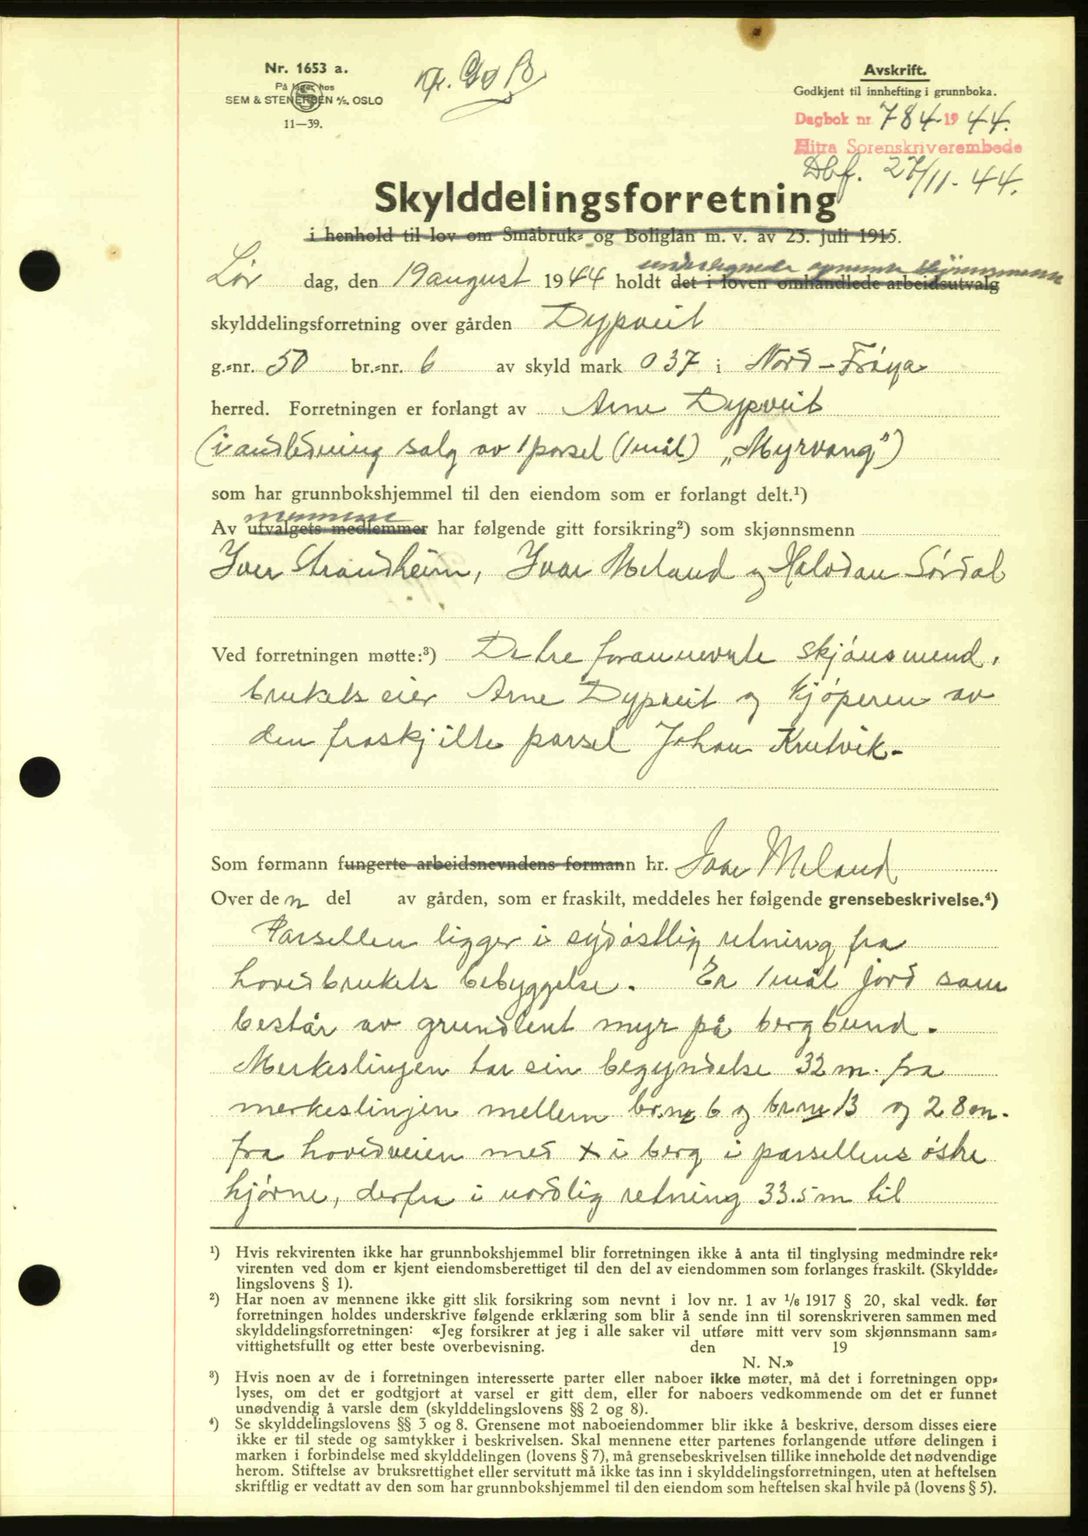 Nr. 1653 a.
På lager hos
SEM & STENERSEN A/S, OSLO
11—39.
Avskrift.
Godkjent til innhefting i grunnboka.
Dagbok nr 784 1944.
Hitra Sorenskriverembede
Dbf. 27/11-44.
Skylddelingsforretning
i henhold til lov om Småbruk- og Boliglån m. v. av 23. juli 1915.
undertegnede
Lør dag, den 19 august 1944 holdt det i loven omhandlede arbeidsutvalg
skylddelingsforretning over gården Dypveit
g.-nr. 50 br.-nr. 6 av skyld mark 0 37 i Nord-Frøya
herred. Forretningen er forlangt av Arne Dypveit
(i andledning salg av 1 parsel (1 mål) „Myrvang")
som har grunnbokshjemmel til den eiendom som er forlangt delt.¹)
mennene
Av utvalgets medlemmer har følgende gitt forsikring²) som skjønnsmenn
Iver Strandheim, Ivar Meland og Halvdan Sørdal
Ved forretningen møtte:³) De tre forannevnte skjønsmend,
brukets eier Arne Dypveit og kjøperen av
den fraskjilte parsel Johan Krutvik-
Som formann fungerte arbeidsnevndens formann hr. Ivar Meland
Over den del av gården, som er fraskilt, meddeles her følgende grensebeskrivelse.⁴)
Parsellen ligger i sydøstlig retning fra
hovedbrukets bebyggelse. Er 1 mål jord som
består av grundlent myr på bergbund.
Merkeslinjen tar sin begyndelse 32 m. fra
merkeslinjen mellem br.nr 6 og br.nr 13 og 28 m.
fra hovedveien med x i berg i parsellens østre
hjørne, derfra i nordlig retning 33.5 m til
¹) Hvis rekvirenten ikke har grunnbokshjemmel blir forretningen ikke å anta til tinglysing medmindre rek-
virenten ved dom er kjent eiendomsberettiget til den del av eiendommen som forlanges fraskilt. (Skyldde-
lingslovens § 1).
²) Har noen av mennene ikke gitt slik forsikring som nevnt i lov nr. 1 av 1/6 1917 § 20, skal vedk. før
forretningen holdes underskrive følgende erklæring som blir å sende inn til sorenskriveren sammen med
skylddelingsforretningen: «Jeg forsikrer at jeg i alle saker vil utføre mitt verv som skjønnsmann sam-
vittighetsfullt og etter beste overbevisning. den 19
N. N.»
³) Hvis noen av de i forretningen interesserte parter eller naboer ikke møter, må det i forretningen opp-
lyses, om det er godtgjort at varsel er gitt dem, eller for naboers vedkommende om det er funnet
unødvendig å varsle dem (skylddelingslovens §§ 2 og 8).
⁴) Se skylddelingslovens §§ 3 og 8. Grensene mot naboeiendommer blir ikke å beskrive, dersom disses eiere
ikke er til stede og samtykker i beskrivelsen. Skal mennene etter partenes forlangende utføre delingen i
marken i forbindelse med skylddelingen (lovens § 7), må grensebeskrivelsen tillike inneholde det nødvendige
herom. Stiftelse av bruksrettighet eller servitutt må ikke tas inn i skylddelingsforretningen, uten at heftelsen
skriftlig er vedtatt av den som har grunnbokshjemmel til den eiendom som heftelsen skal hvile på (lovens § 5).